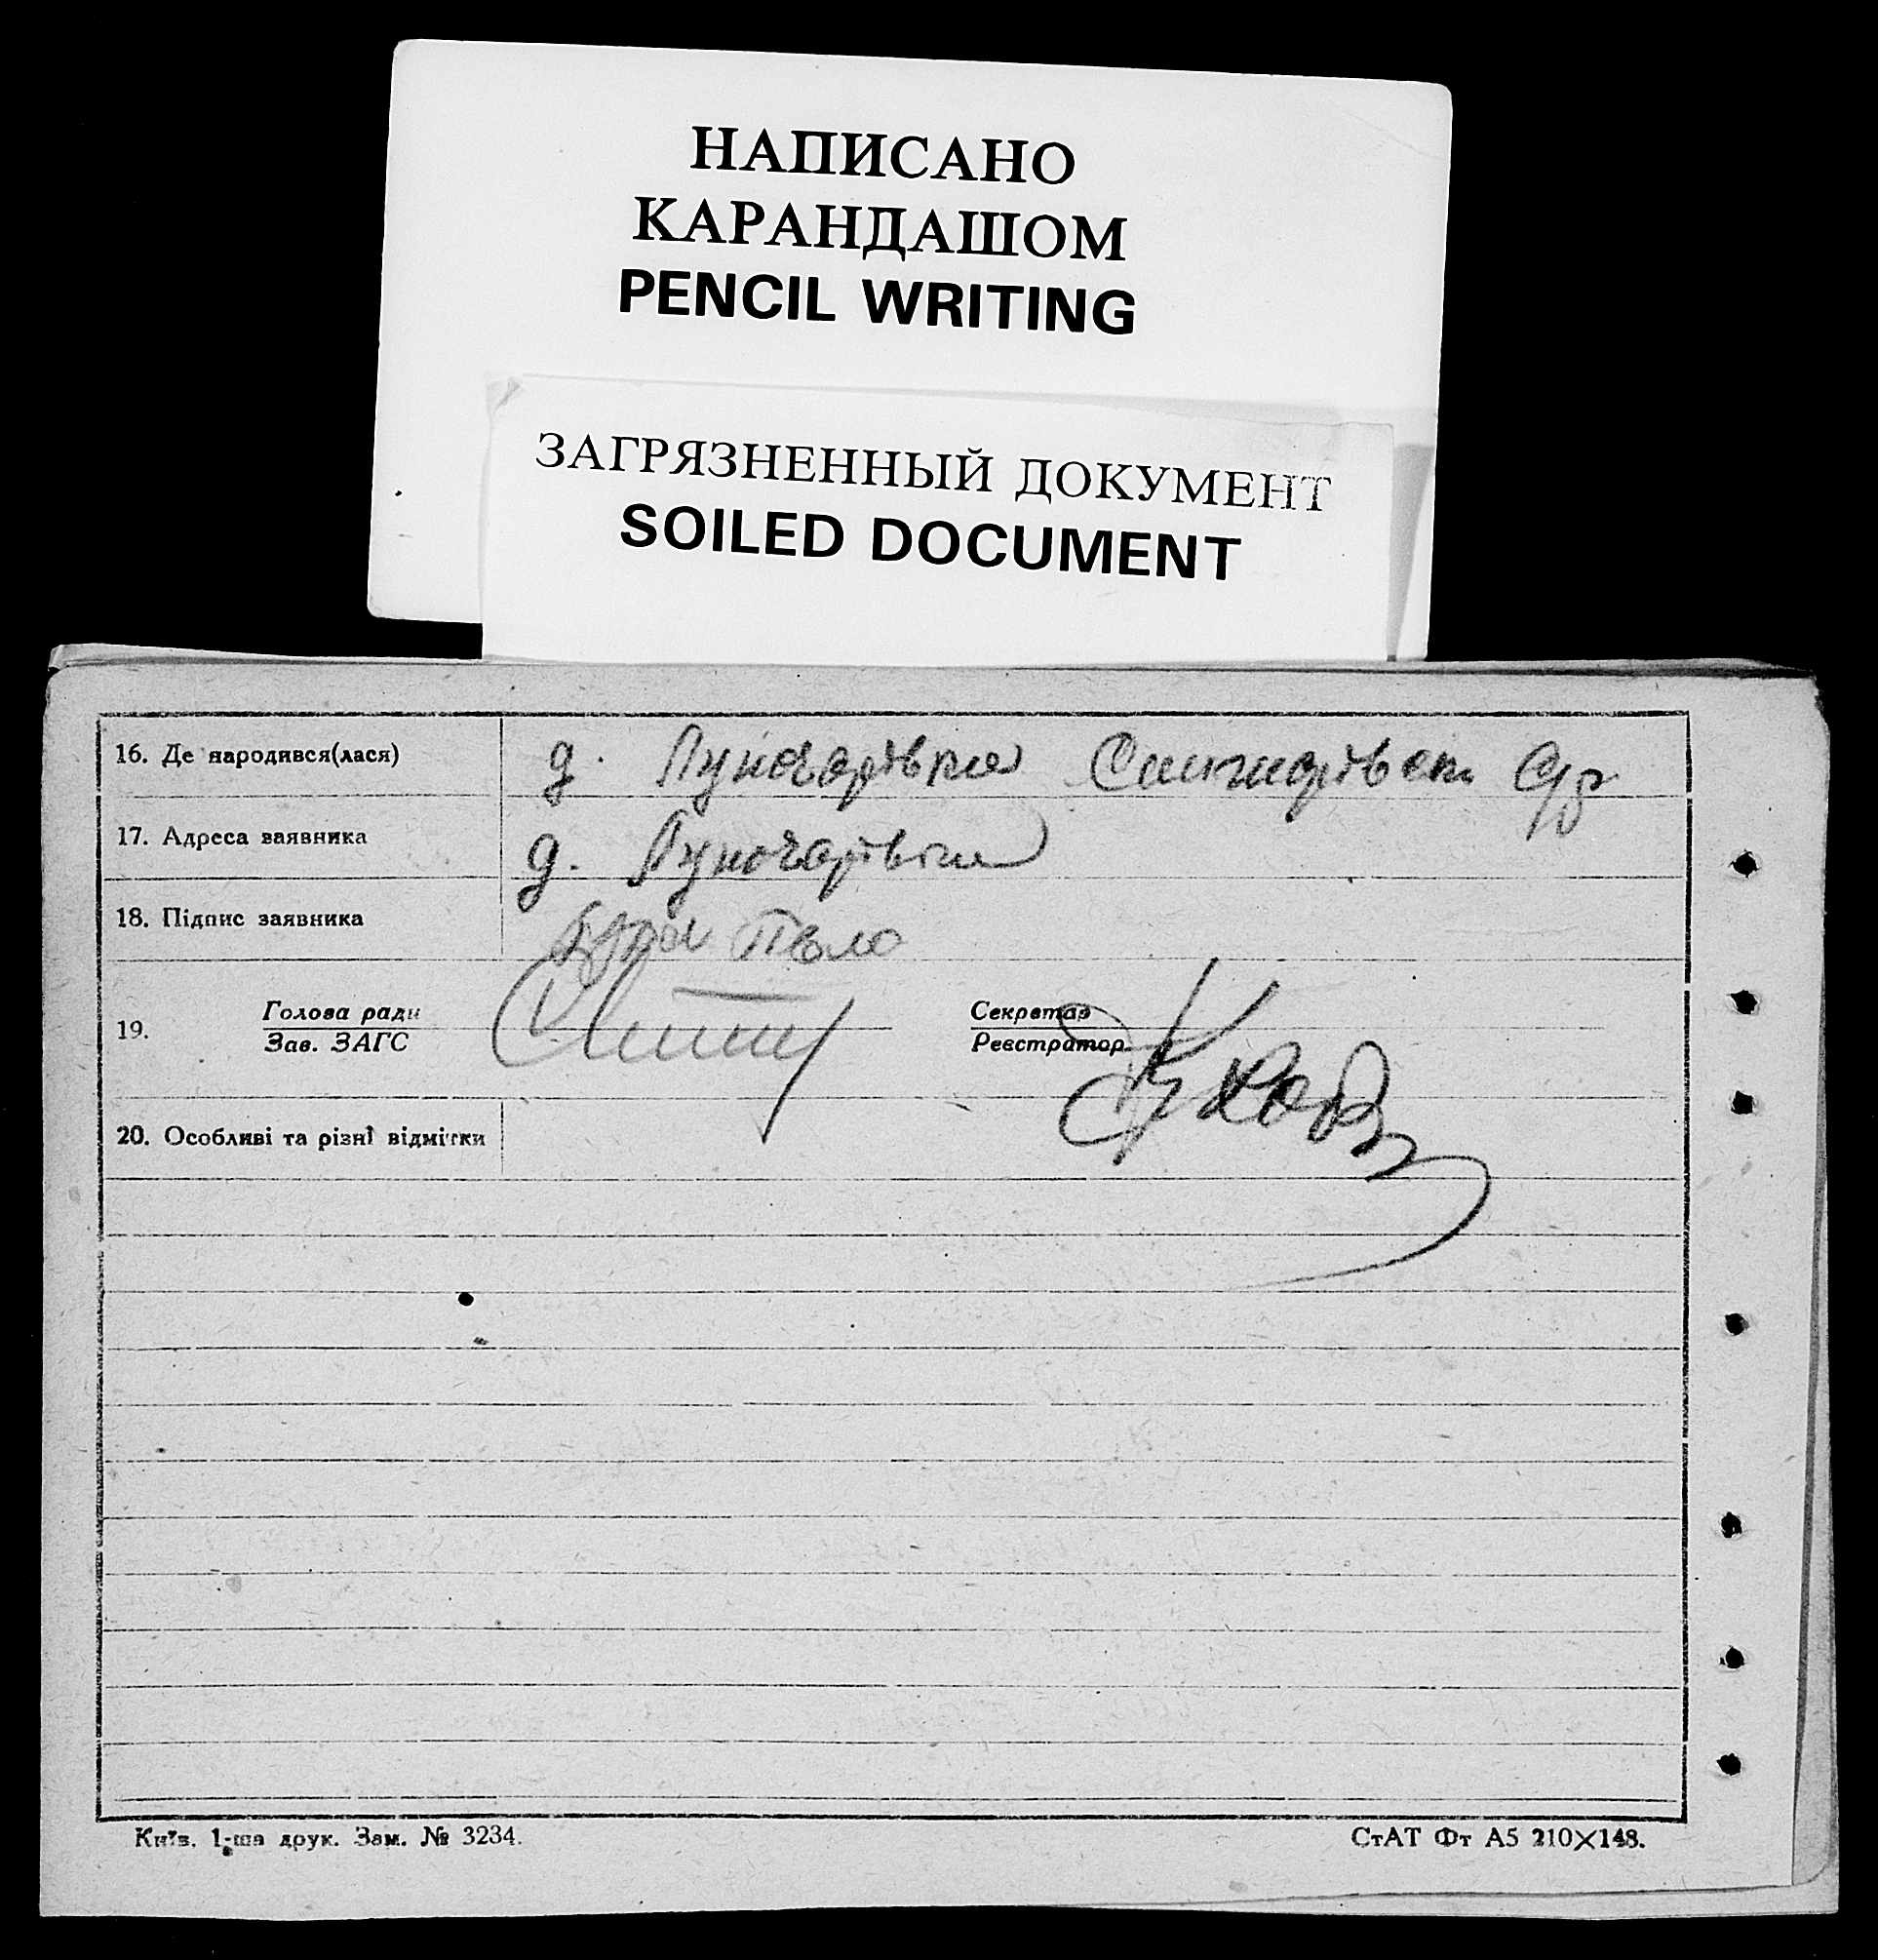 НАПИСАНО
КАРАНДАШОМ
PENCIL WRITING
ЗАГРЯЗНЕННЫЙ ДОКУМЕНТ
SOILED DOCUMENT
16. Де народився(лася) д. Луночарівка
17. Адреса заявника д. Луночарівка
18. Підпис заявника
19. Голова ради Секретар
Зав. ЗАГС Реєстратор
20. Особливі та різні відмітки
Київ. 1-ша друк. Зам. № 3234. СтАТ Фт А5 210×148.